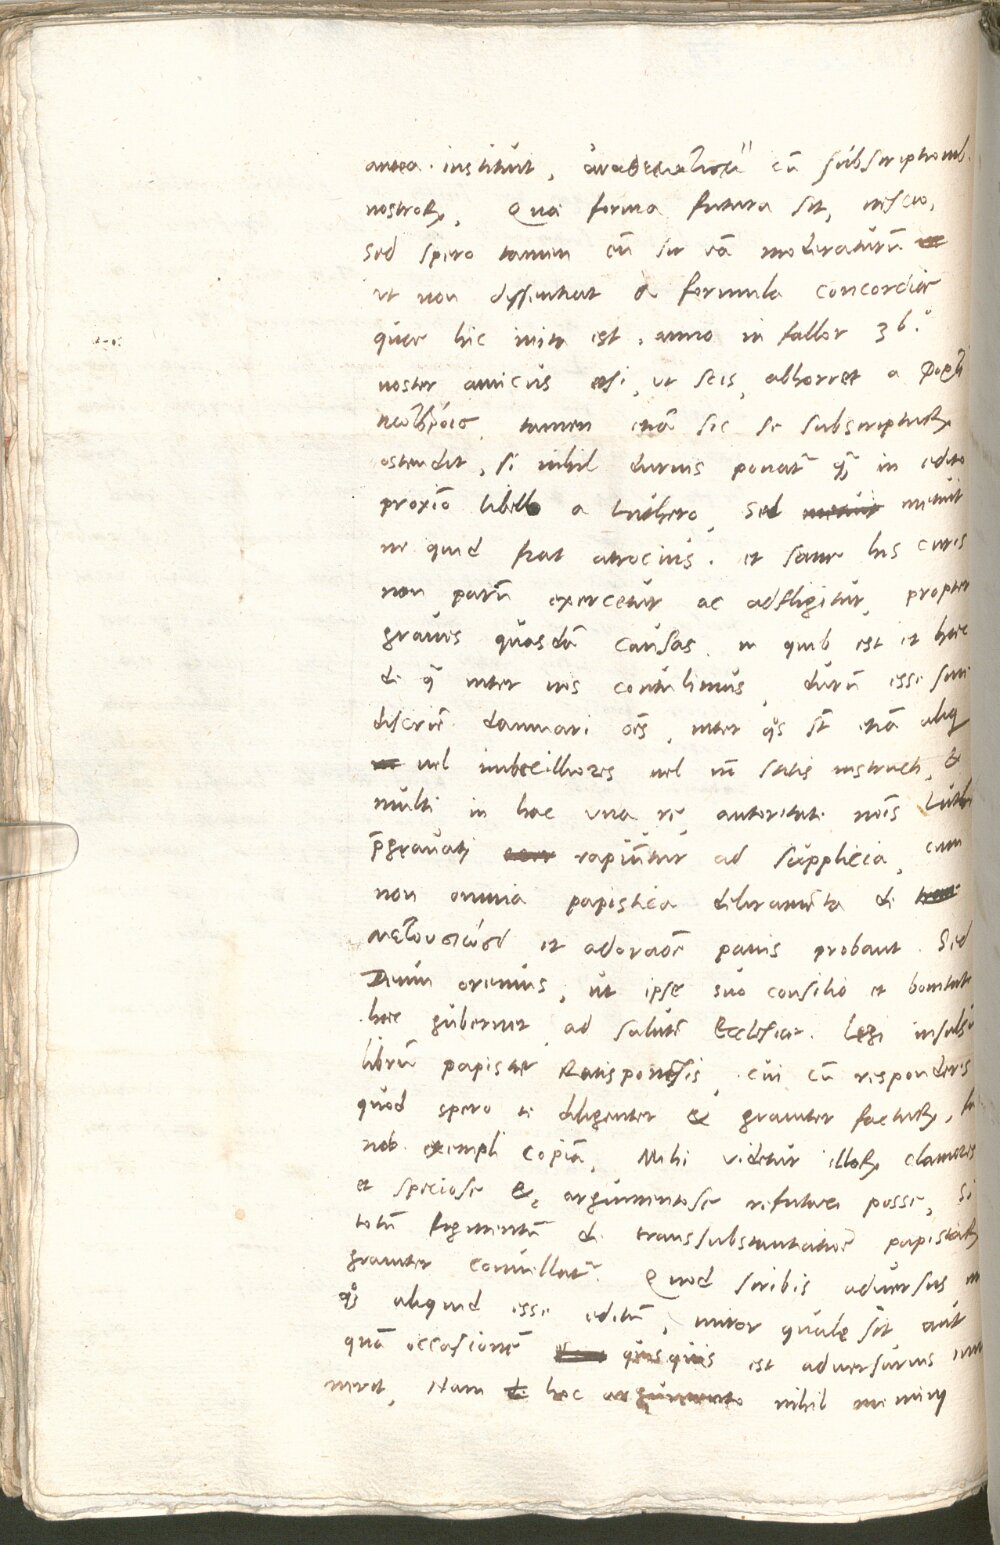 antea instituit, cū subscriptionib.
nostroꝝ, Qua forma futura sit, nescio,
sed spero tamen eū sic eā moderaturū
ut non dissentiat a formula concordiæ
quæ hic inita est, anno ni fallor 36.
noster amicus etsi, ut scis, abhorret a
tamen etiā sic se subscripturꝝ
ostendit, si nihil durius ponat̄ qꝫ in edito
proxīo libello a Luthero, Sed metuit metuit
ne quid fiat atrocius. et sane his curis
non parū exercetur ac adfligitur, propter
graveis quasdā causas. in quib est et hæc
de q̄ inter nos contulimus, durū esse sine
discrīe damnari oēs, inter qͦs st̄ etiā aliq
vel imbecilliores vel nō satis instructi, &
multi in hac una re autoritate nois Luthe
p̄gravati rapiuntur ad supplicia, cum
non omnia papistica deliramēta de
μετουσιώσει et adoraōe panis probant. Sed
Deum oremus, ut ipse suo consilio et bonitate
hæc gubernet ad salutē Ecclesiæ. Legi insulsū
librū papistæ Ratisponēsis, cui cū responderis
quod spero te diligenter & graviter facturꝝ, fac
nob. exempli copiā, Mihi videtur illoꝝ clamores
et speciose & argumentose refutari posse, si
totū figmentū de transsubstantiatiōe papistaꝝ
graviter convellat̄. Quod scribis adversus
qͦs aliquid esse editū, miror quale sit aut
quā occasionē quisquis est adversarius
nerit, Nam de hoc argumento nihil memini